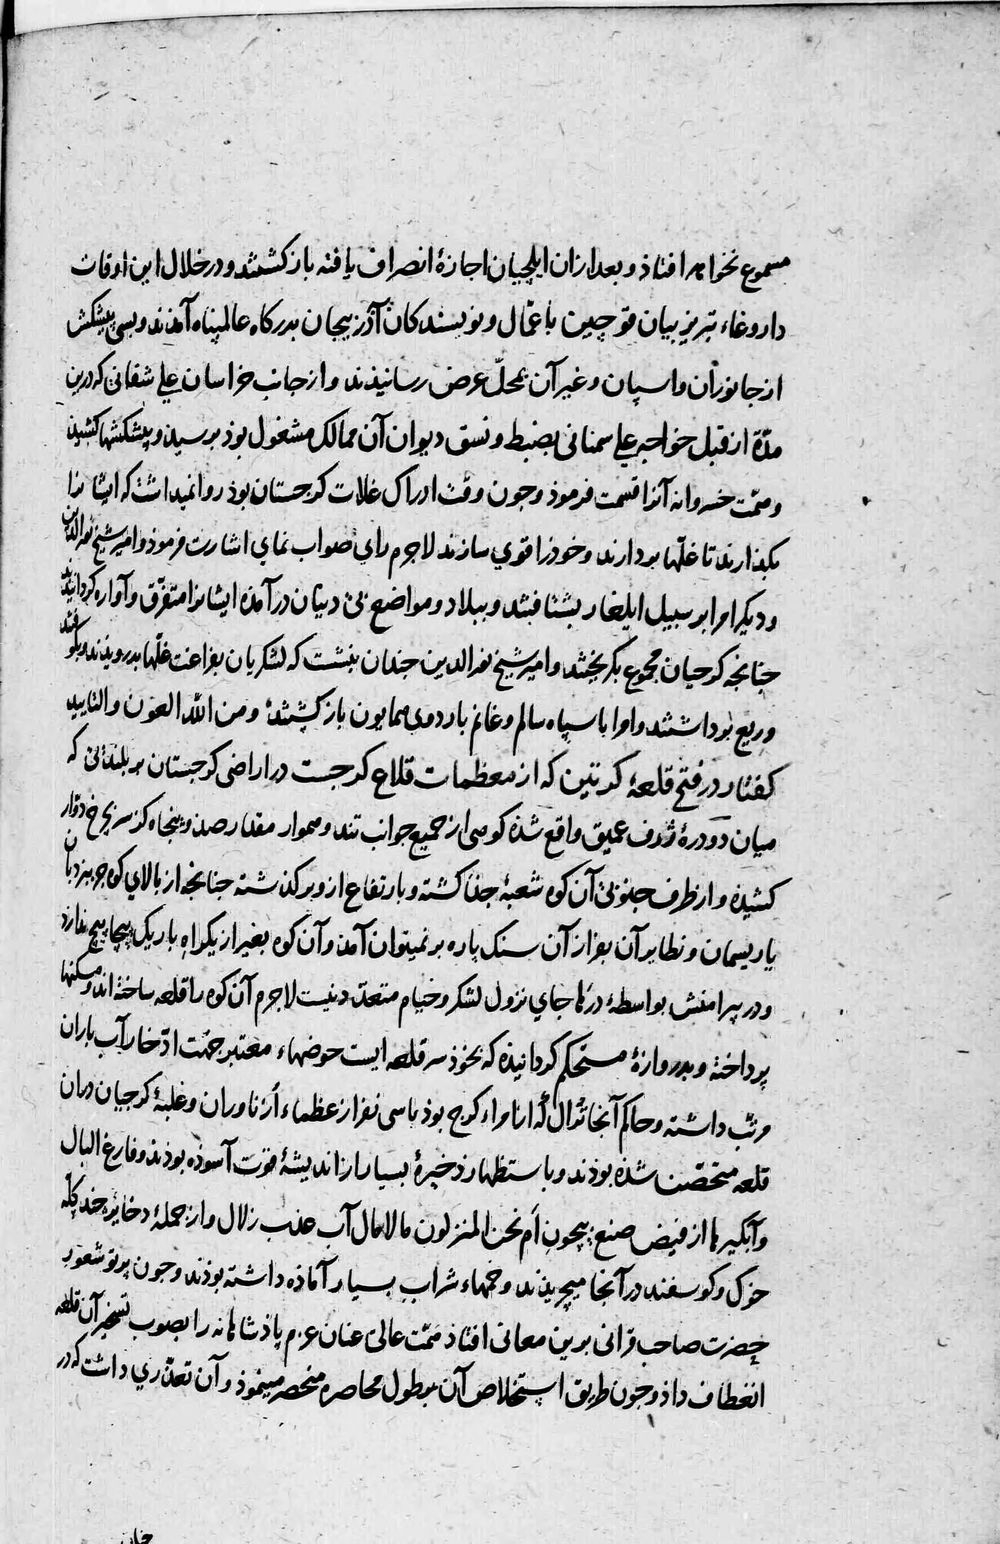 مسموع نخواهد افتاذ و بعد ازان ایلچیان اجازهٔ انصراف یافته بازگشتند و در خلال این اوقات
داروغاء تبریز بیان قوچین با عمّال و نویسندکان آذربیجان بدرکاه عالمپناه آمدند و بسی پیشکش
از جانوران و اسپان و غیر آن بمحلّ عرض رسانیذند و از جانب خراسان علی شقانی که درین
مدّة از قبل خواجه علی سمنانی بضبط و نسق دیوان آن ممالک مشغول بوذ برسید و پیشکشها کشید
و همّت خسروانه آنرا قسمت فرموذ و جون وقت ادراک غلات کرجستان بوذ روا نمیداشت که ایشانرا
بکذارند تا غلّها بردارند و خوذرا قوی سازند لاجرم رای صواب نمای اشارت فرموذ و امیر شیخ نور الدین
و دیکر امرا بر سبیل ایلغار بشتافتند و ببلاد و مواضع بی دینان در آمذه ایشانرا متفرّق و آواره کردانیدند
جنانجه کرجیان مجموع بکریختند و امیر شیخ نور الدین جندان بنشست که لشکریان بفراغت غلّها بدرویذند و بکوفتند
و ربع برداشتند و امرا با سپاه سالم و غانم باردوی همایون بازکشتند و من الله العون و التایید
کفتار در فتح قلعهٔ کرتین که از معظمات قلاع کرجست در اراضی کرجستان بر بلندئی که
میان دو درهٔ ژرف عمیق واقع شذه کوهی از جمیع جوانب تند و هموار مقدار صذ و پنجاه کز سر بجرخ دوّار
کشیذه و از طرف جنوبی آن کوه شعبهٔ جذا کشته و بارتفاع ازو بر کذشته جنانجه از بالای کوه جز بنردبان
یا ریسمان و نظایر آن بفراز آن سنک پاره بر نمیتوان آمذ و آن کوه بغیر از یکراه باریک پیچاپیچ ندارد
و در پیرامنش بواسطهٔ درّها جای نزول لشکر و خیام متعدّد نیست لاجرم آن کوه را قلعه ساخته اند و مسکنها
پرداخته و بدروازهٔ مستحکم کردانیذه که بخوذ سر قلعه ایست حوضهاء معتبر جهت ادّخار آب باران
مرتّب داشته و حاکم آنجا تُرال که از امراء کرج بوذ با سی نفر از عظماء ازناوران و غلبهٔ کرجیان دران
قلعه متحصّن شذه بوذند و باستظهار ذخیرهٔ بسیار از اندیشهٔ قوت آسوذه بوذند و فارغ البال
و آبکیرها از فیض صنع بیچون أم نحن المنزلون مالامال آب عذب زلال و از جملهٔ ذخایر جند کله
خوک و کوسفند در آنجا میچریذند و خمهاء شراب بسیار آماذه داشته بوذند و جون پرتو شعور
حضرت صاحب قرانی برین معانی افتاذ همّت عالی عنان عزم پاذشاهانه را بصوب تسخیر آن قلعه
انعطاف داذ و جون طریق استخلاص آن بطول محاصره منحصر مینموذ و آن تعذّری داشت که در
جنان